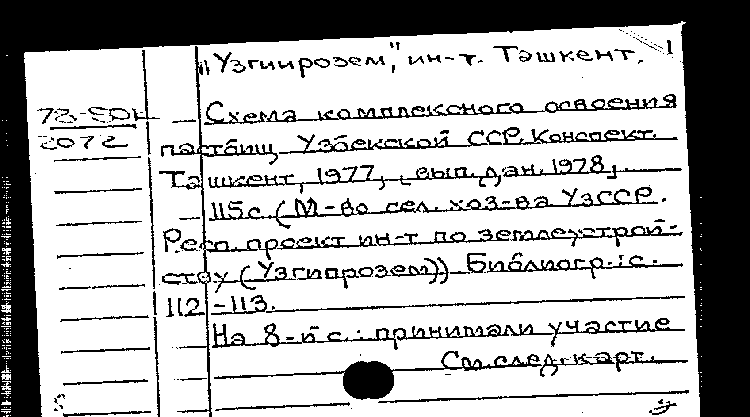 "Узгипрозем", ин-т. Ташкент. 1
Схема комплексного освоения
2072 пастбищ Узбекской ССР. Конспект.
Ташкент, 1977, [вып. дан. 1978].
115с. (М-во сел. хоз-ва УзССР.
Респ. проект ин-т по землеустрой-
ству (Узгипрозем)) Библиогр.: с.
112-113.
На 8-й с.: принимали участие
См. след. карт.